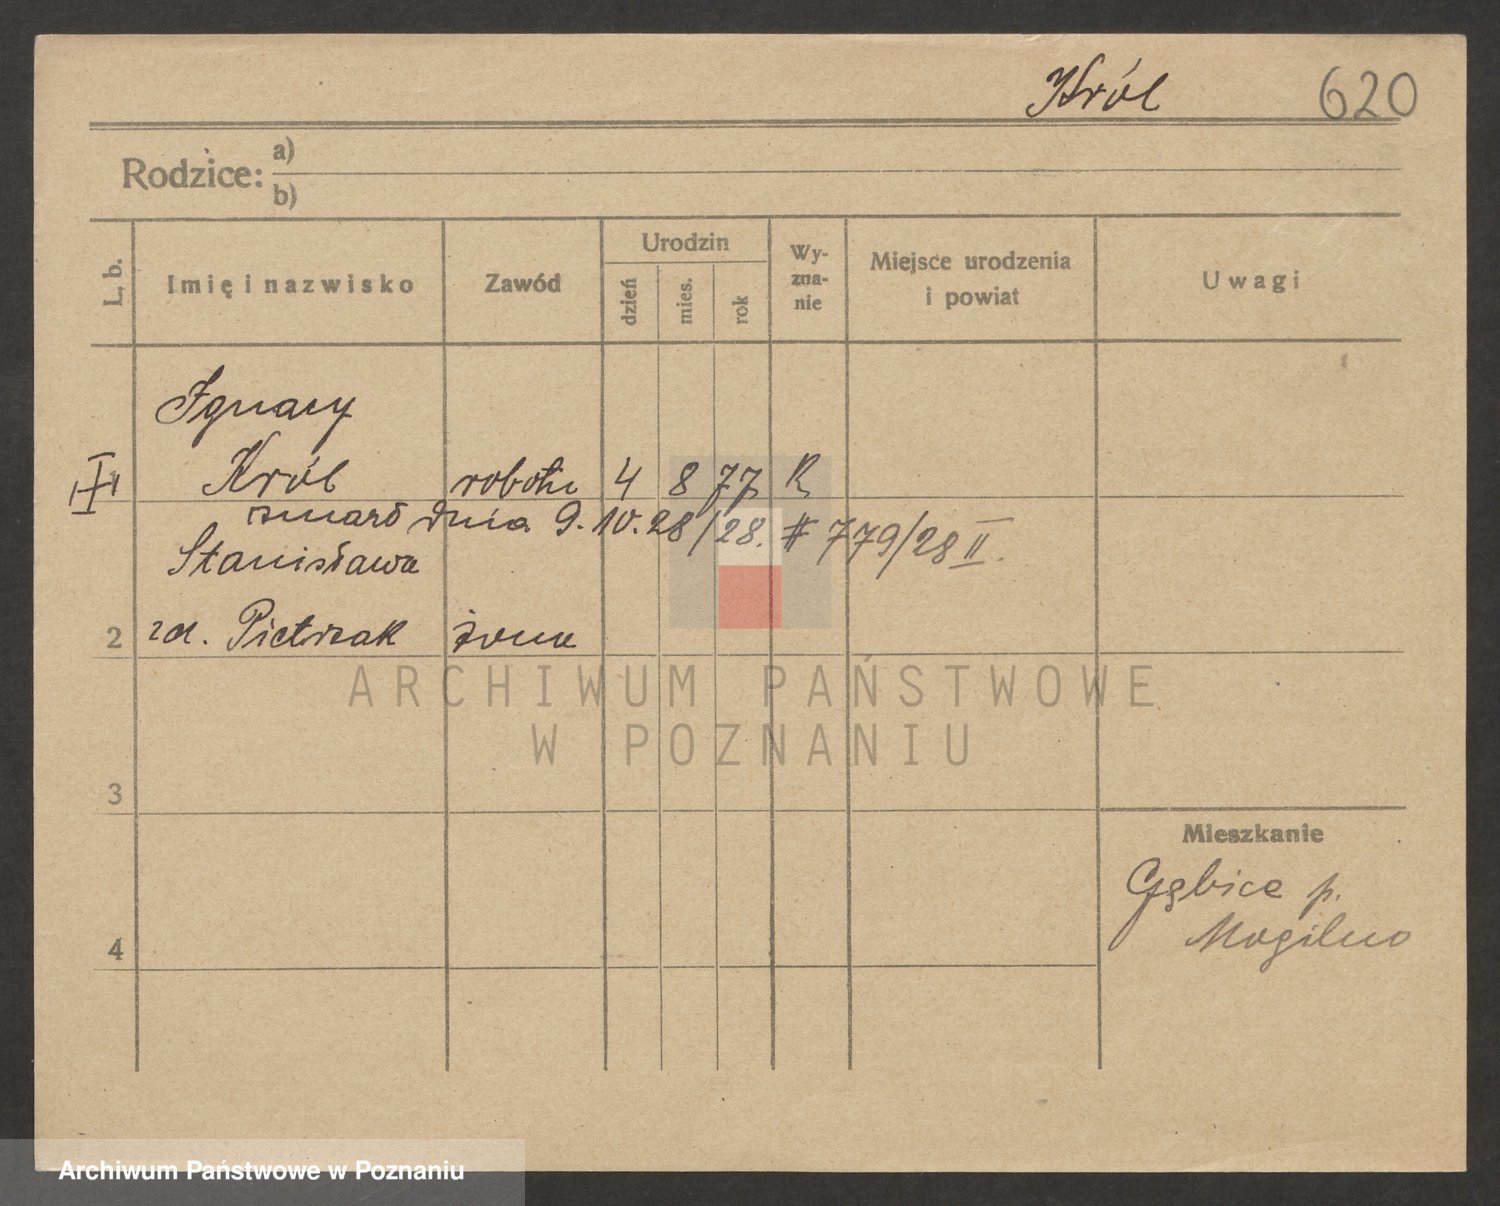 Król 620
Rodzice: a)
b)
L. b. Imię i nazwisko Zawód Urodzin dzień mies. rok Wy-zna-nie Miejsce urodzenia i powiat Uwagi
Ignacy
Król robotn 4 8 77 R
zmarł dnia 9.10.28/28. # 779/28 II.
Stanisława
2 zd. Pietrzak żona
ARCHIWUM PAŃSTWOWE
W POZNANIU
3
Mieszkanie
Gębice p.
4 Mogilno
Archiwum Państwowe w Poznaniu